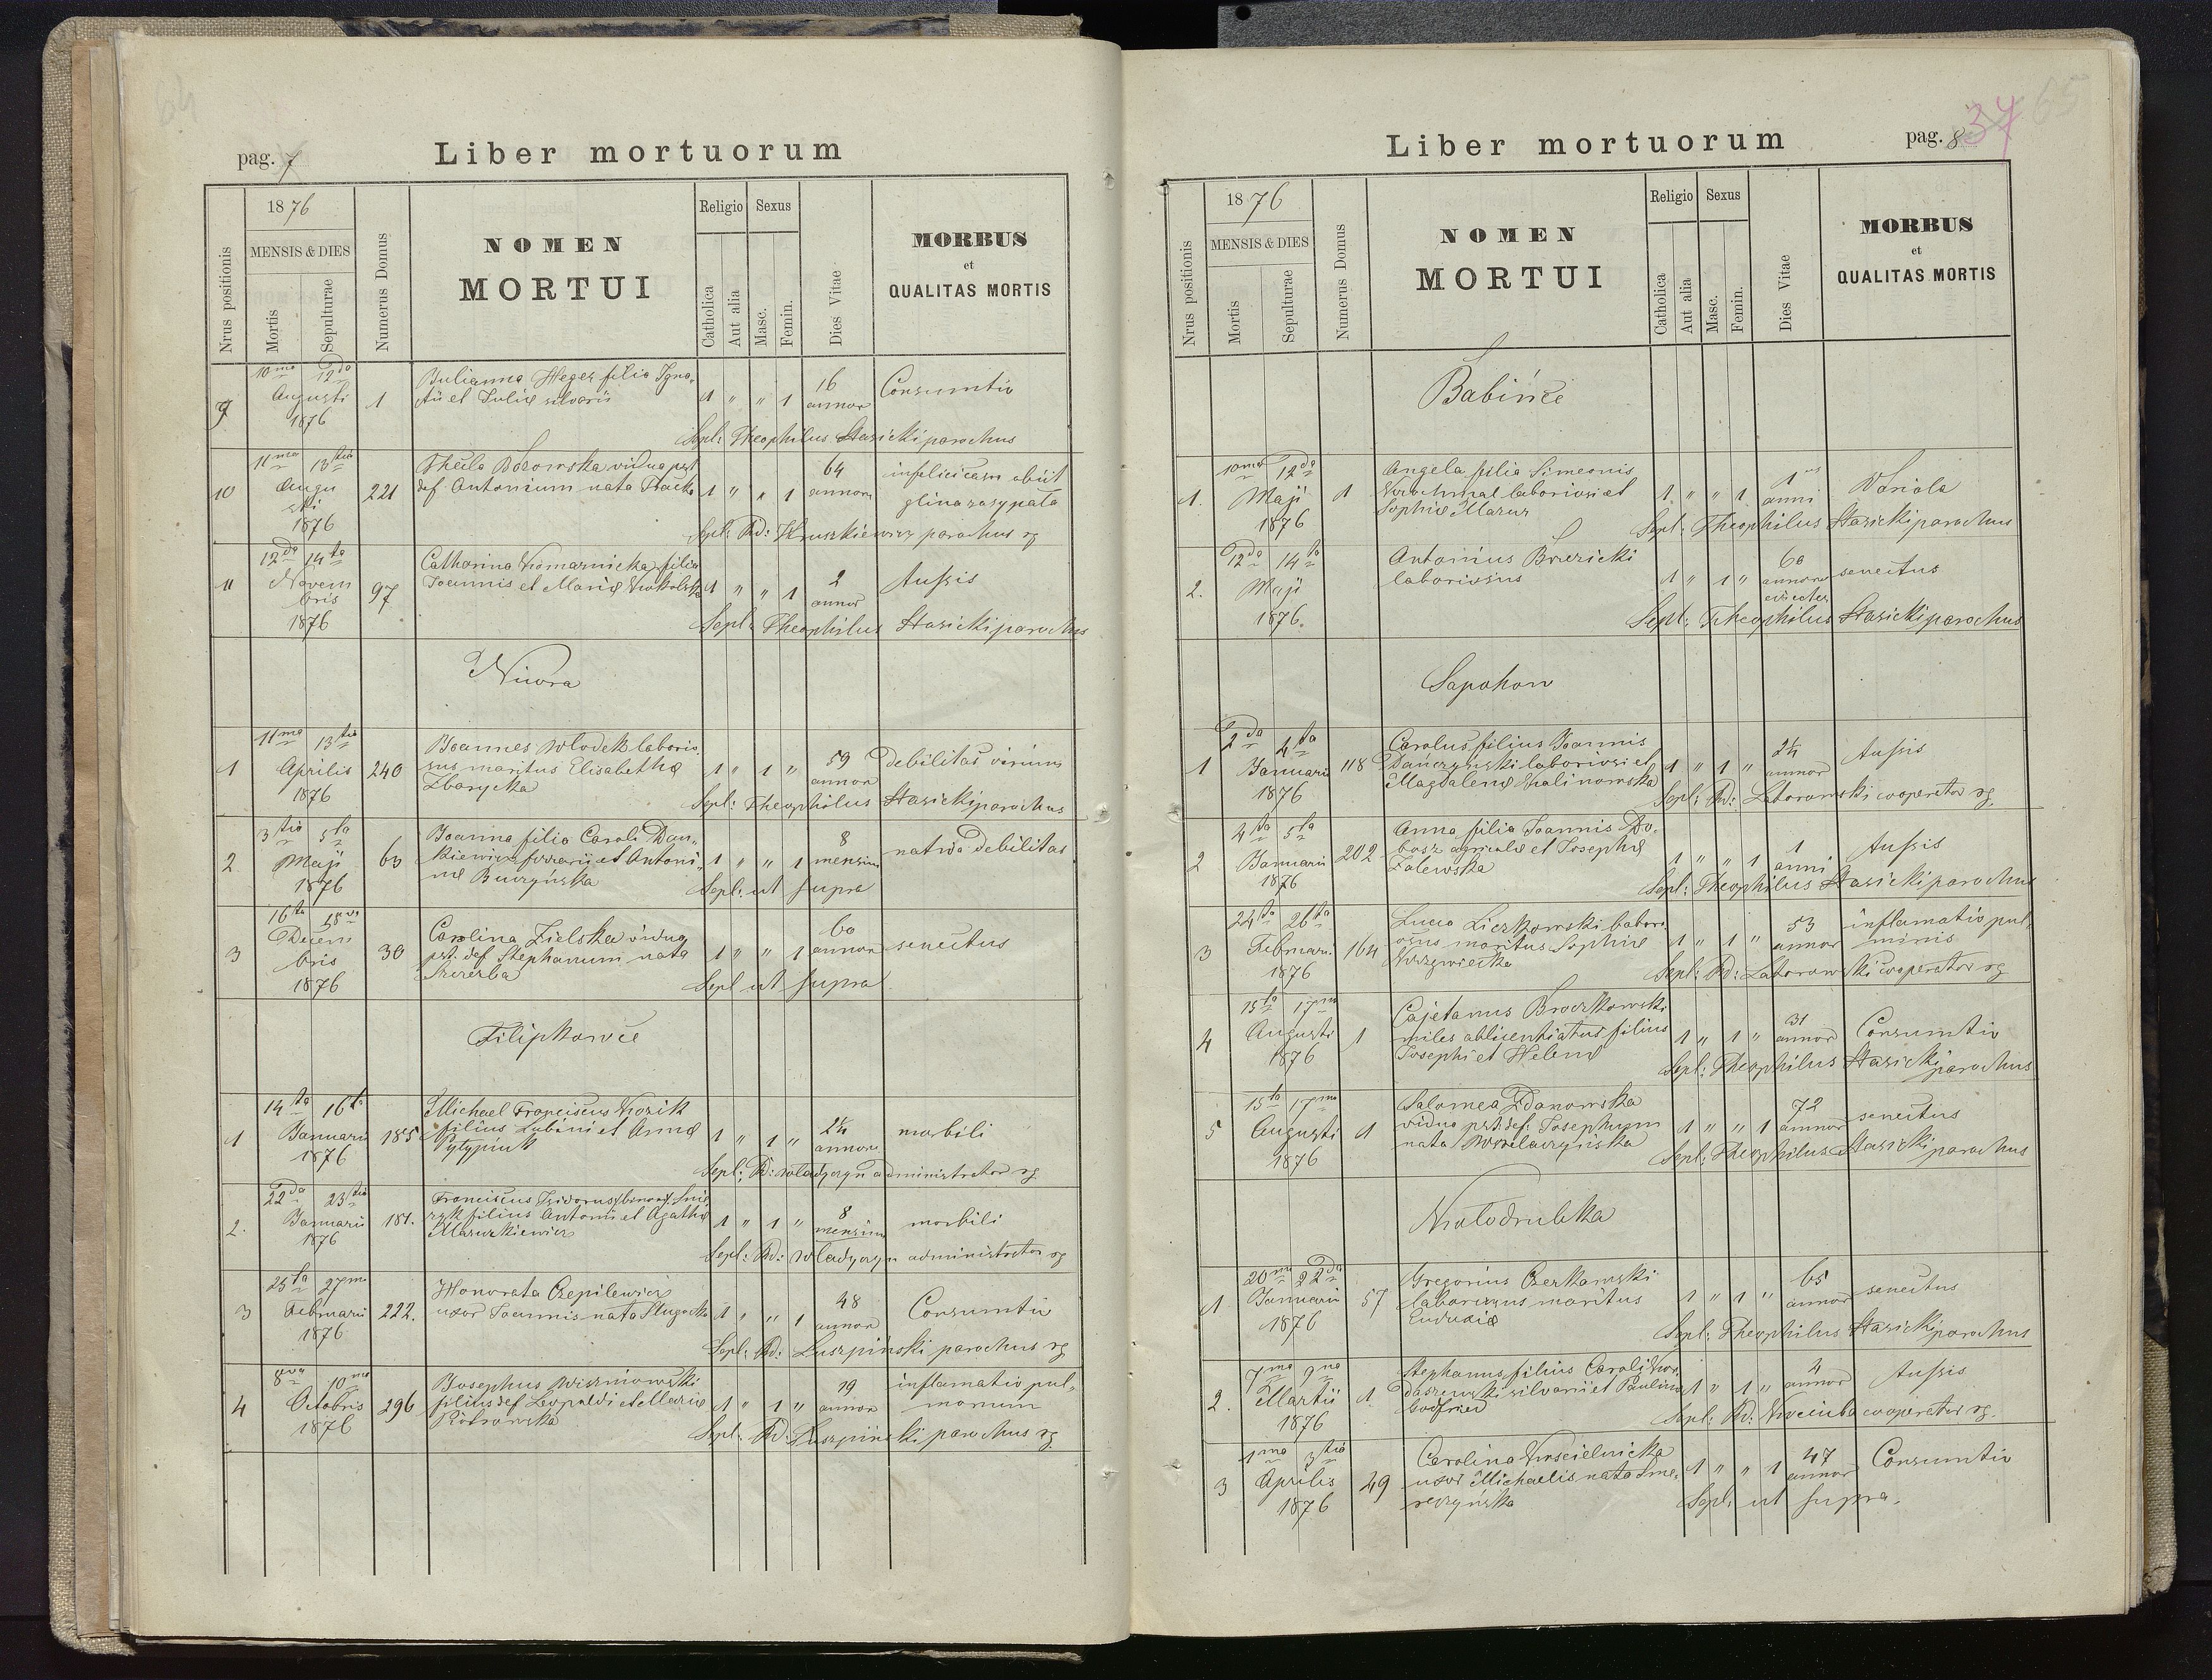 64
pag. 7
Liber mortuorum
Nrus positionis
1876
MENSIS & DIES
Mortis
Sepulturae
Numerus Domus
NOMEN
MORTUI
Religio
Sexus
Catholica
Aut alia
Masc.
Femin.
Dies Vitae
MORBUS
et
QUALITAS MORTIS
9
10ma 12da
Augusti
1876
1
Julianna Heger filia Igna-
tii et Juliae silvarii
1 " " 1
16
annor
Consumtio
Sepl: Theophilus Stasicki parochus
10
11ma 13tia
Augu
sti
1876
221
Thecla Borowska vidua pst
def. Antonium nata
1 " " 1
64
annor
infelici casu obiit
glina zasypata
Sepl: Rd: Kruszkiewicz parochus rg
11
12da 14ta
Novem
bris
1876
97
Catharina Komarnicka filia
Joannis et Mariae
1 " " 1
2
annor
Tussis
Sepl: Theophilus Stasicki parochus
Niwra
1
11ma 13tia
Aprilis
1876
240
Joannes Wlodek laborio-
sus maritus Elisabethae
Zbarycka
1 " 1 "
59
annor
debilitas virium
Sepl: Theophilus Stasicki parochus
2
3tia 5ta
Maji
1876
63
Joanna filia Caroli Dan-
kiewicz ferrarii et Antoni
nae Buczyńska
1 " " 1
8
mensium
nativa debilitas
Sepl: ut supra
3
16ta 18va
Decem
bris
1876
30
Carolina Zielska vidua
pst. def Stephanum nata
Szczerba
1 " " 1
60
annor
senectus
Sepl ut supra
Filipkowce
1
14ta 16ta
Januarii
1876
185
Michael Franciscus Kozik
filius Lubini et Annae
Pytypiuk
1 " 1 "
2½
annor
morbili
Sepl: Rd: Wladyczyn administrator rg
2.
22da 23tia
Januarii
1876
181.
Franciscus Isidorus
filius Antonii et Agathae
Mazurkiewicz
1 " 1 "
8
mensium
morbili
Sepl: Rd: Wladyczyn administrator rg
3
25ta 27ma
Februarii
1876
222.
Honorata Czepilewicz
uxor Joannis nata Slugocka
1 " " 1
48
annor
Consumtio
Sepl: Rd: Luszpiński parochus rg
4
8va 10ma
Octobris
1876
296
Josephus Wiszniowski
filius def Leopoldi et Mariae
Piotrowska
1 " 1 "
19
annor
inflamatio pul-
monum
Sepl: Rd: Luszpiński parochus rg
65
37
pag. 8
Liber mortuorum
Nrus positionis
1876
MENSIS & DIES
Mortis
Sepulturae
Numerus Domus
NOMEN
MORTUI
Religio
Sexus
Catholica
Aut alia
Masc.
Femin.
Dies Vitae
MORBUS
et
QUALITAS MORTIS
Babińce
1.
10ma 12da
Maji
1876
1
Angela filia Simeonis
Krochmal laboriosi et
Sophiae Mazur
1 " " 1
1
anni
Variola
Sepl: Theophilus Stasicki parochus
2.
12da 14ta
Maji
1876.
Antonius Brzezicki
laboriosus
1 " 1 "
60
annor
circiter
senectus
Sepl: Theophilus Stasicki parochus
Sapohow
1
2da 4ta
Januarii
1876
118
Carolus filius Joannis
Danczynski laboriosi et
Magdalenae Kalinowska
1 " 1 "
2½
annor
Tussis
Sepl: Rd: Laborowski cooperator rg.
2
4ta 5ta
Januarii
1876
202
Anna filia Joannis Do-
bosz agricolae et Josephae
Zalewska
1 " " 1
1
anni
Tussis
Sepl: Theophilus Stasicki parochus
3
24ta 26ta
Februarii
1876
164
Lucas Liczkowski labori
osus maritus Sophiae
1 " 1 "
53
annor
inflamatio pul-
minis
Sepl: Rd: Laborowski cooperator rg
4
15ta 17ma
Augusti
1876
1
Cajetanus Broczkowski
miles ablicentiatus filius
Josephi et Helenae
1 " 1 "
31
annor
Consumtio
Sepl: Theophilus Stasicki parochus
5
15ta 17ma
Augusti
1876
1
Salomea Zdanowska
vidua pst. def. Josephum
nata
1 " " 1
72
annor
senectus
Sepl: Theophilus Stasicki parochus
Wolodrubka
1
20ma 22da
Januarii
1876
57
Gregorius Czerkawski
laboriosus maritus
Eudoxiae
1 " 1 "
65
annor
senectus
Sepl: Theophilus Stasicki parochus
2.
7ma 9na
Martii
1876
1.
Stephanus filius Caroli Kor-
daszewski silvarii et Paulinae
Godfried
1 " 1 "
4
annor
Tussis
Sepl: Rd: Kociuba cooperator rg.
3
1ma 3tia
Aprilis
1876
29
Carolina Koscielnicka
uxor Michaelis nata Sme-
reczyńska
1 " " 1
47
annor
Consumtio
Sepl: ut supra.